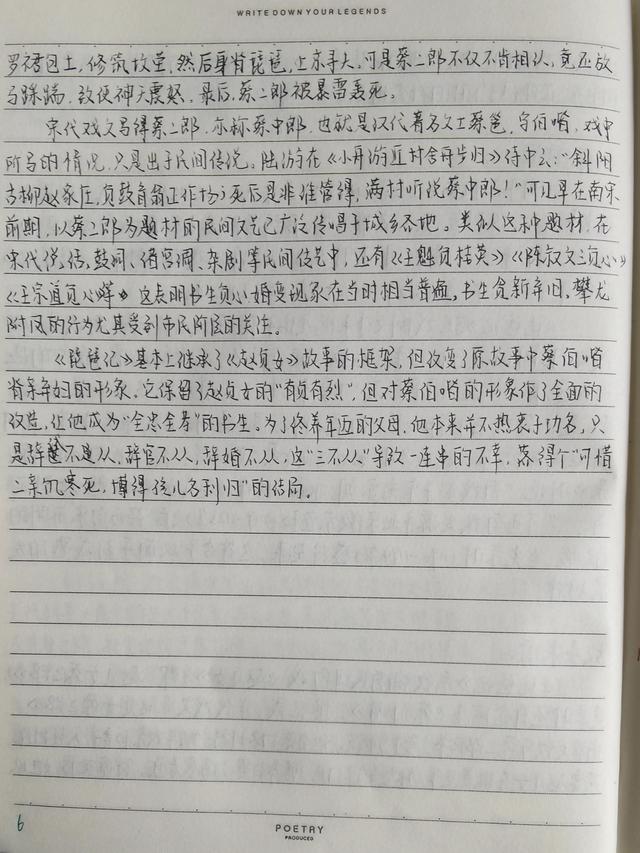 WRITE DOWN YOUR LEGENDS
罗裙包土，修筑坟茔，然后身背琵琶，上京寻夫。可是蔡二郎不仅不肯相认，竟还放
马踩踹，致使神天震怒。最后，蔡二郎被暴雷轰死。
宋代戏文写得蔡二郎，亦称蔡中郎，也就是汉代著名文士蔡邕，字伯喈，戏中
所写的情况，只是出于民间传说。陆游在《小舟游近村舍舟步归》诗中云："斜阳
古柳赵家庄，负鼓盲翁正作场，死后是非谁管得，满村听说蔡中郎！"可见早在南宋
前期，以蔡二郎为题材的民间文艺已广泛传唱于城乡各地。类似这种题材，在
宋代说话、鼓词、诸宫调、杂剧等民间传艺中，还有《王魁负桂英》《陈叔文三负心》
《王宗道负心》这表明书生负心婚变现象在当时相当普遍，书生贪新弃旧，攀龙
附凤的行为尤其受到市民阶层的关注。
《琵琶记》基本上继承了《赵贞女》故事的框架，但改变了原故事中蔡伯喈
背亲弃妇的形象。它保留了赵贞女的"有贞有烈"，但对蔡伯喈的形象作了全面的
改造，让他成为"全忠全孝"的书生。为了侍养年迈的父母，他本来并不热衷于功名，只
是辞试不从，辞官不从，辞婚不从，这"三不从"导致一连串的不幸，落得个"可惜
二亲饥寒死，博得孩儿名利归"的结局。
6
POETRY
PRODUCED